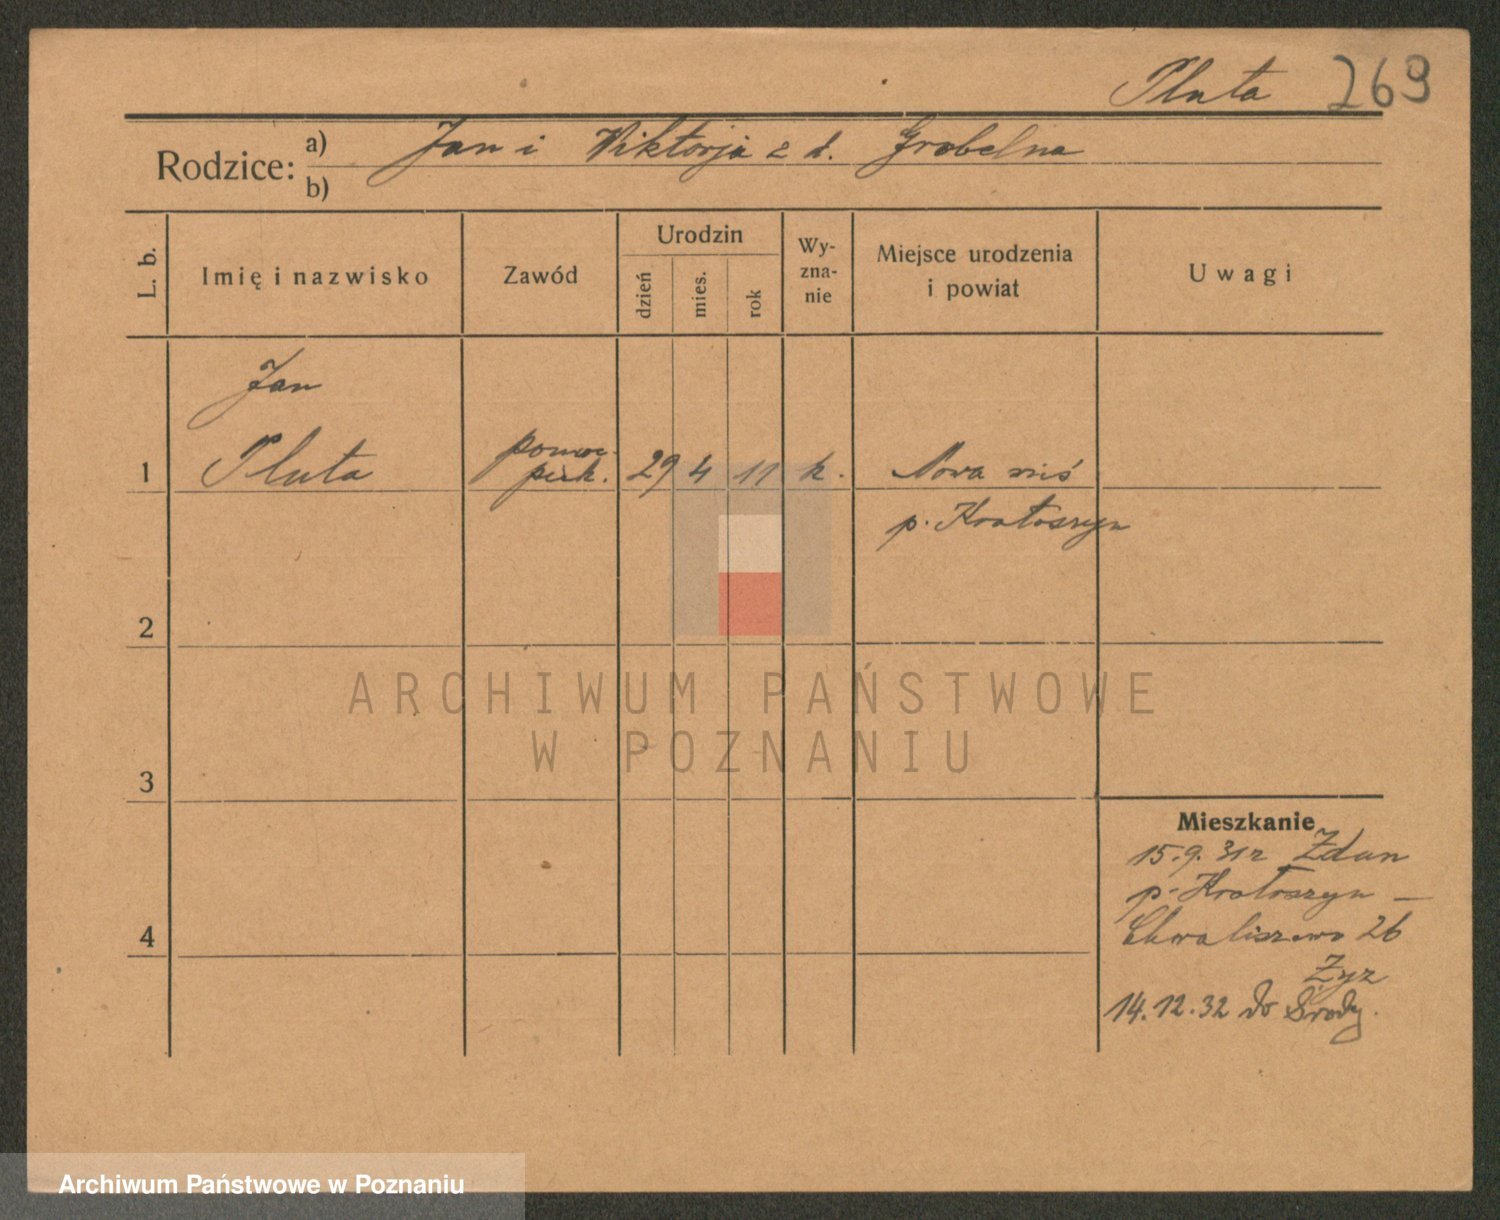 Pluta 269
Rodzice: a) Jan i Wiktorja z d. Grobelna
b)
L. b.
Imię i nazwisko
Zawód
Urodzin
dzień
mies.
rok
Wy-
zna-
nie
Miejsce urodzenia
i powiat
Uwagi
Jan
1 Pluta pomoc. piek. 29 4 11 k. Nowa wieś
p. Krotoszyn
2
3
4
Mieszkanie
15.9.31 z Zdun
p. Krotoszyn —
Chwaliszewo 26
Zyz
14.12.32 do Środy.
ARCHIWUM PAŃSTWOWE
W POZNANIU
Archiwum Państwowe w Poznaniu